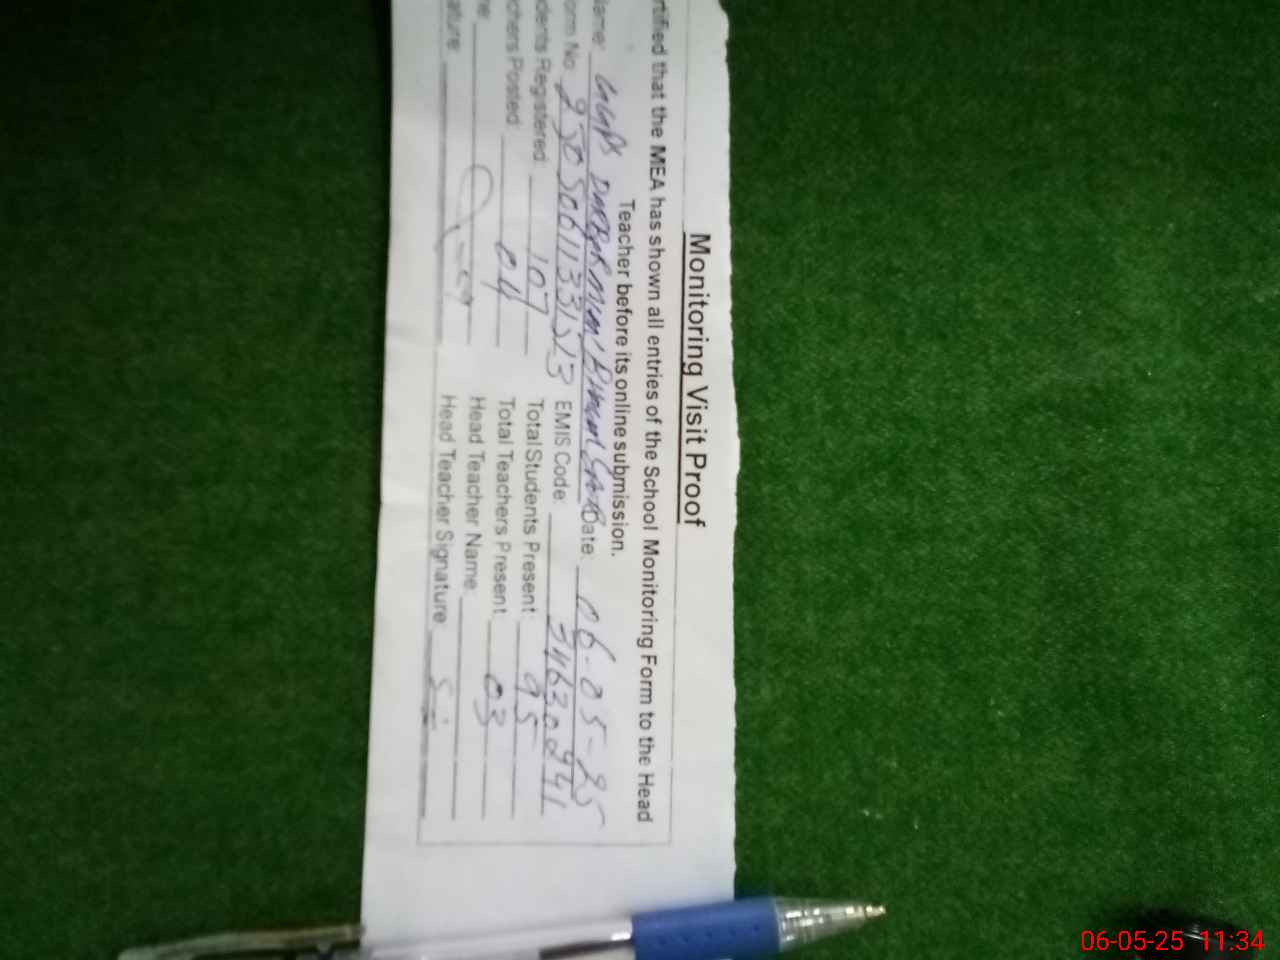 Monitoring Visit Proof
rtified that the MEA has shown all entries of the School Monitoring Form to the Head
Teacher before its online submission.
ame: Date: 06-05-25
orm No 2505061133513 EMIS Code:
dents Registered: 107 Total Students Present: 95
chers Posted: 04 Total Teachers Present 03
me: Head Teacher Name:
ature: Head Teacher Signature
06-05-25 11:34